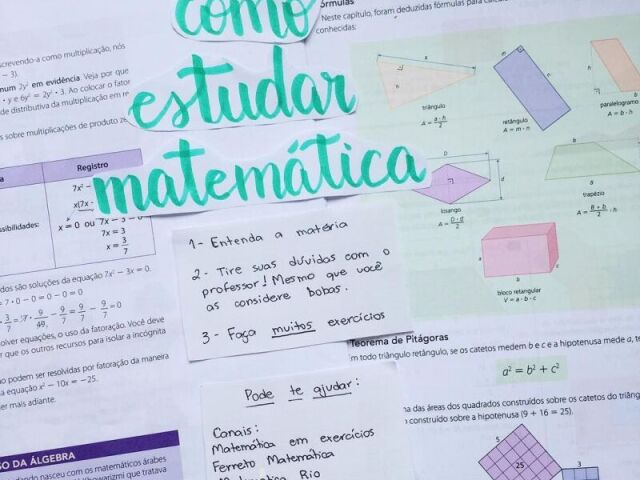 como
estudar
matemática
1- Entenda a matéria
2- Tire suas dúvidas com o
professor! Mesmo que você
as considere bobas.
3- Faça muitos exercícios
Pode te ajudar:
Canais:
Matemática em exercícios
Ferreto Matemática
Matemática Rio
screvendo-a como multiplicação, nós
− 3).
num 2y² em evidência. Veja por que
· y e 6y² = 2y² · 3. Ao colocar o fator
de distributiva da multiplicação em
s sobre multiplicações de produto
Registro
7x² −
x(7x −
ssibilidades:
x = 0 ou 7x − 3 = 0
7x = 3
x = 3/7
dos são soluções da equação 7x² − 3x = 0.
= 7 · 0 − 0 = 0 − 0 = 0
olver equações, o uso da fatoração. Você deve
r que os outros recursos para isolar a incógnita
o podem ser resolvidas por fatoração da maneira
a equação x² − 10x = −25.
er mais adiante.
SO DA ÁLGEBRA
dando nasceu com os matemáticos árabes
que tratava
órmulas
Neste capítulo, foram deduzidas fórmulas para
conhecidas:
triângulo
A = a · h / 2
retângulo
A = m · n
paralelogramo
A = b · h
losango
A = D · d / 2
trapézio
A = B + b / 2 · h
bloco retangular
V = a · b · c
Teorema de Pitágoras
m todo triângulo retângulo, se os catetos medem b e c e a hipotenusa mede a,
a² = b² + c²
ma das áreas dos quadrados construídos sobre os catetos do
construído sobre a hipotenusa (9 + 16 = 25).
5
25
3